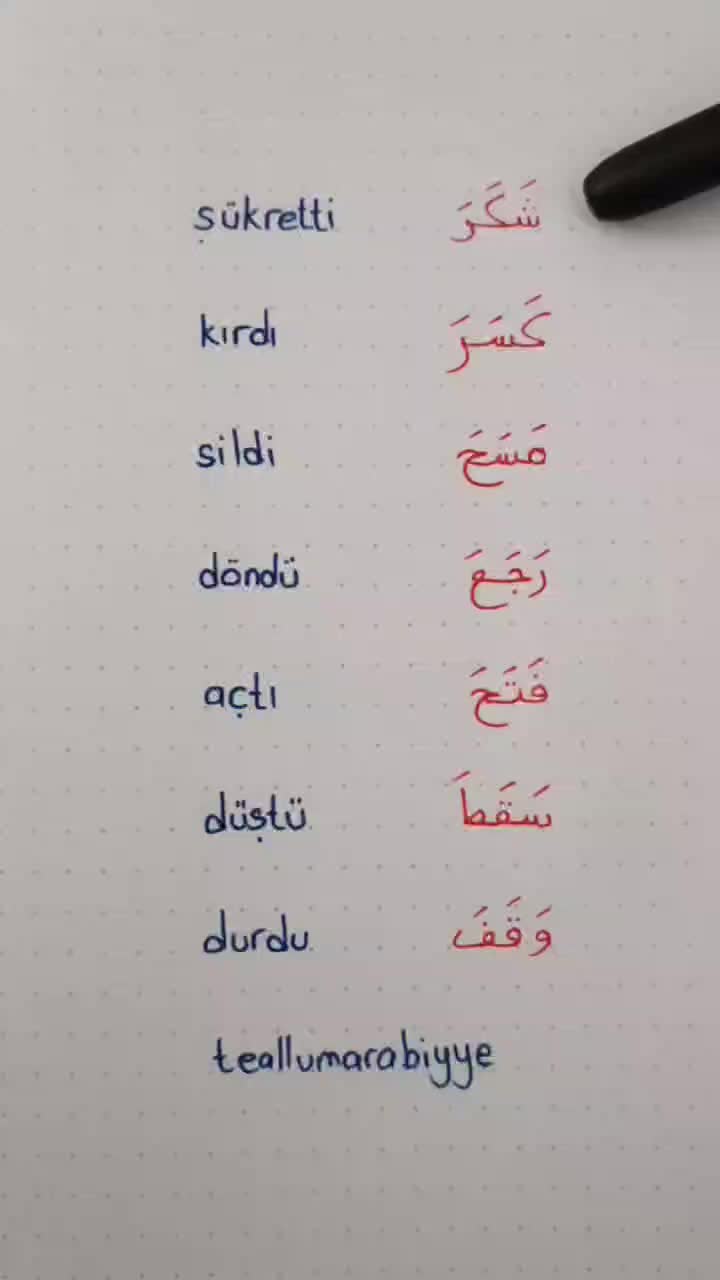 şükretti شَكَرَ
kırdı كَسَرَ
sildi مَسَحَ
döndü رَجَعَ
açtı فَتَحَ
düştü سَقَطَ
durdu وَقَفَ
teallumarabiyye